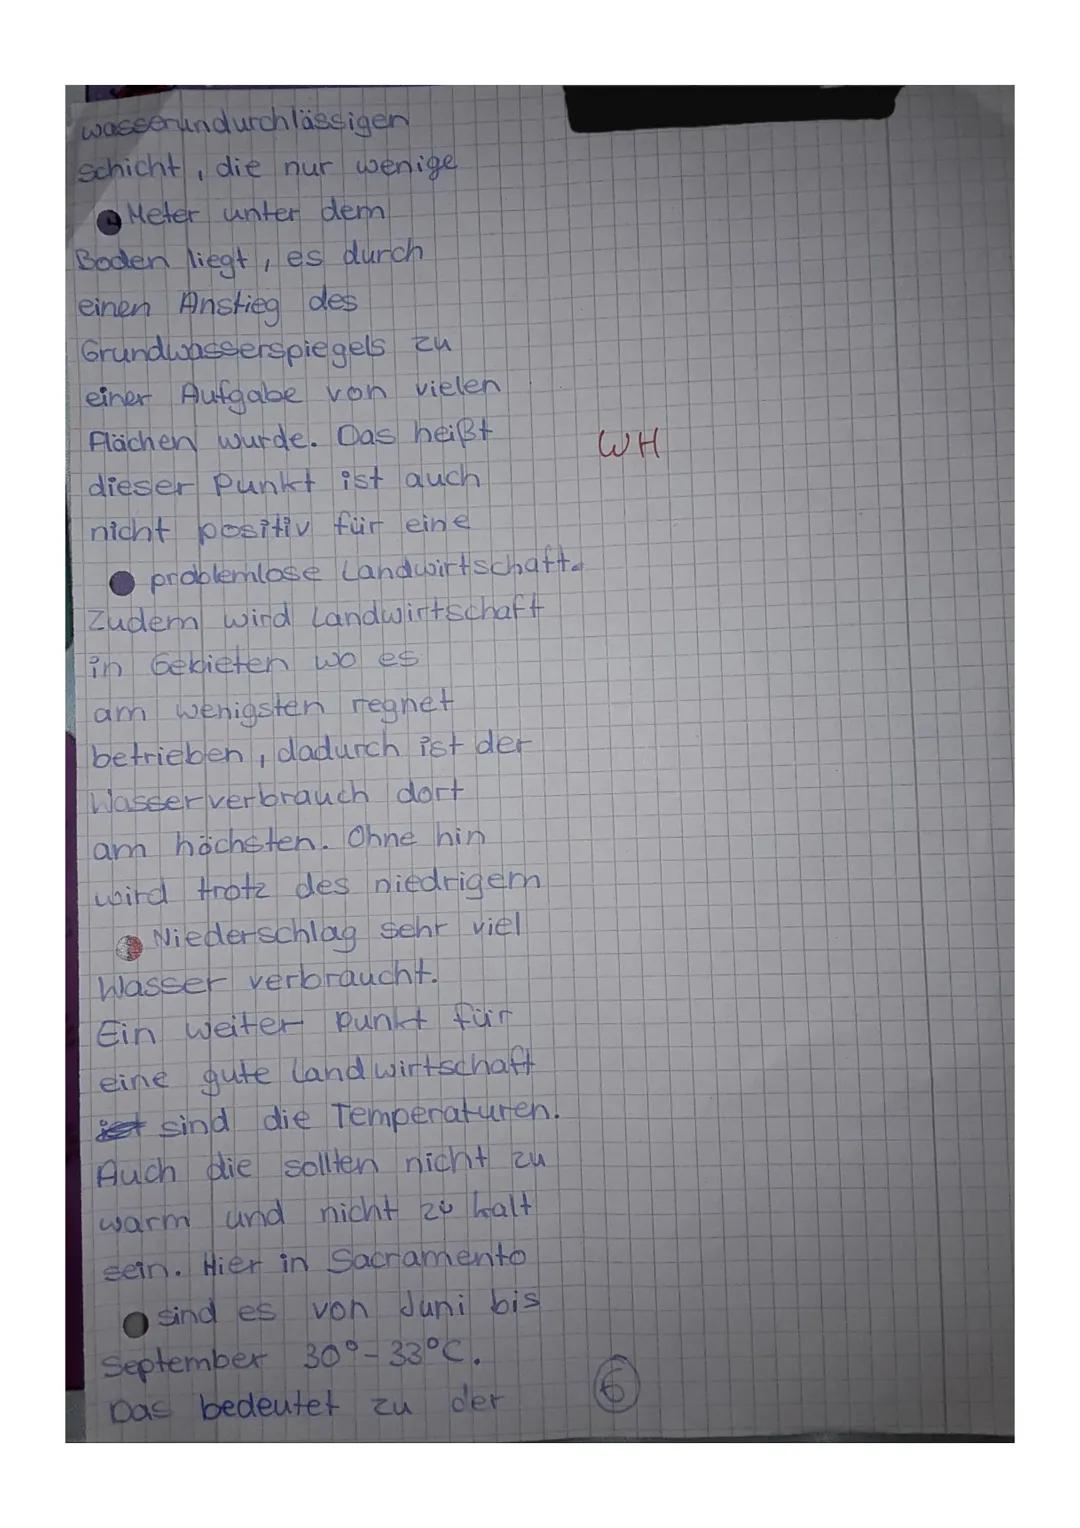 wasserundurchlässigen
schicht, die nur wenige
Meter unter dem
Boden liegt, es durch
einen Anstieg des
Grundwasserspiegels zu
einer Aufgabe von vielen
Flächen wurde. Das heißt
WH
dieser Punkt ist auch
nicht positiv für eine
problemlose Landwirtschaft.
Zudem wird Landwirtschaft
in Gebieten wo es
am wenigsten regnet
betrieben, dadurch ist der
Wasserverbrauch dort
am höchsten. Ohne hin
wird trotz des niedrigem
Niederschlag sehr viel
Wasser verbraucht.
Ein weiter Punkt für
eine gute Landwirtschaft
ist sind die Temperaturen.
Auch die sollten nicht zu
warm und nicht zu kalt
sein. Hier in Sacramento
sind es von Juni bis
September 30°-33°C.
Das bedeutet zu der
6